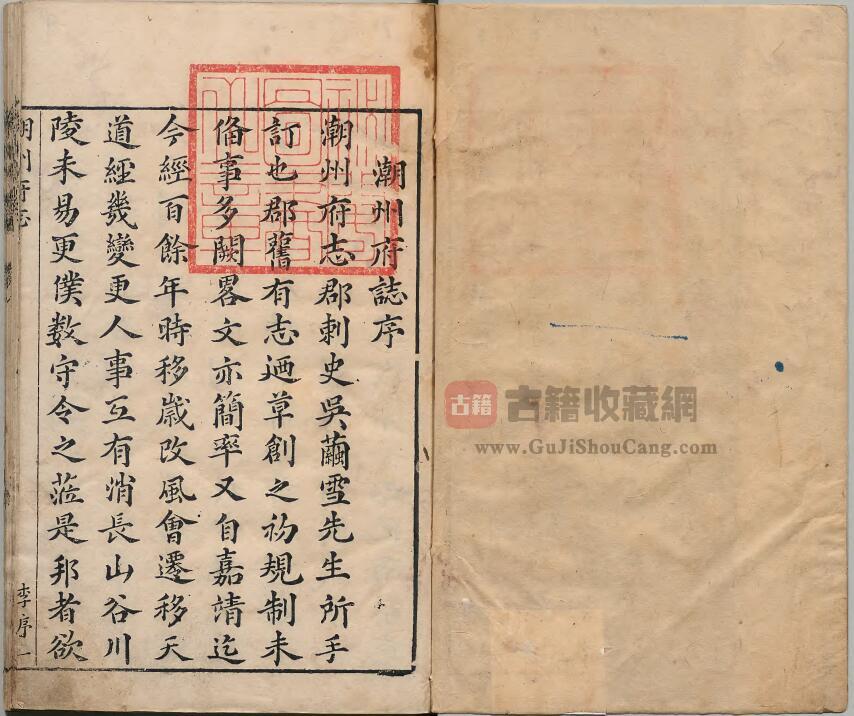 潮州府誌序
潮州府志郡刺史吳繭雪先生所手
訂也郡舊有志迺草創之初規制未
偹事多闕畧文亦簡率又自嘉靖迄
今經百餘年時移歲改風會遷移天
道經幾變更人事互有消長山谷川
陵未易更僕数守令之蒞是邦者欲
潮州府志
李序一
古籍 古籍收藏網
www.GuJiShouCang.com